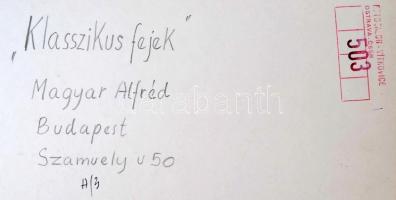 „Klasszikus fejek"
Magyar Alfréd
Budapest
Szamuely u 50
A/3
FOTOKLUB-VÍTKOVICE
OSTRAVA, ČSSR
503
darabanth